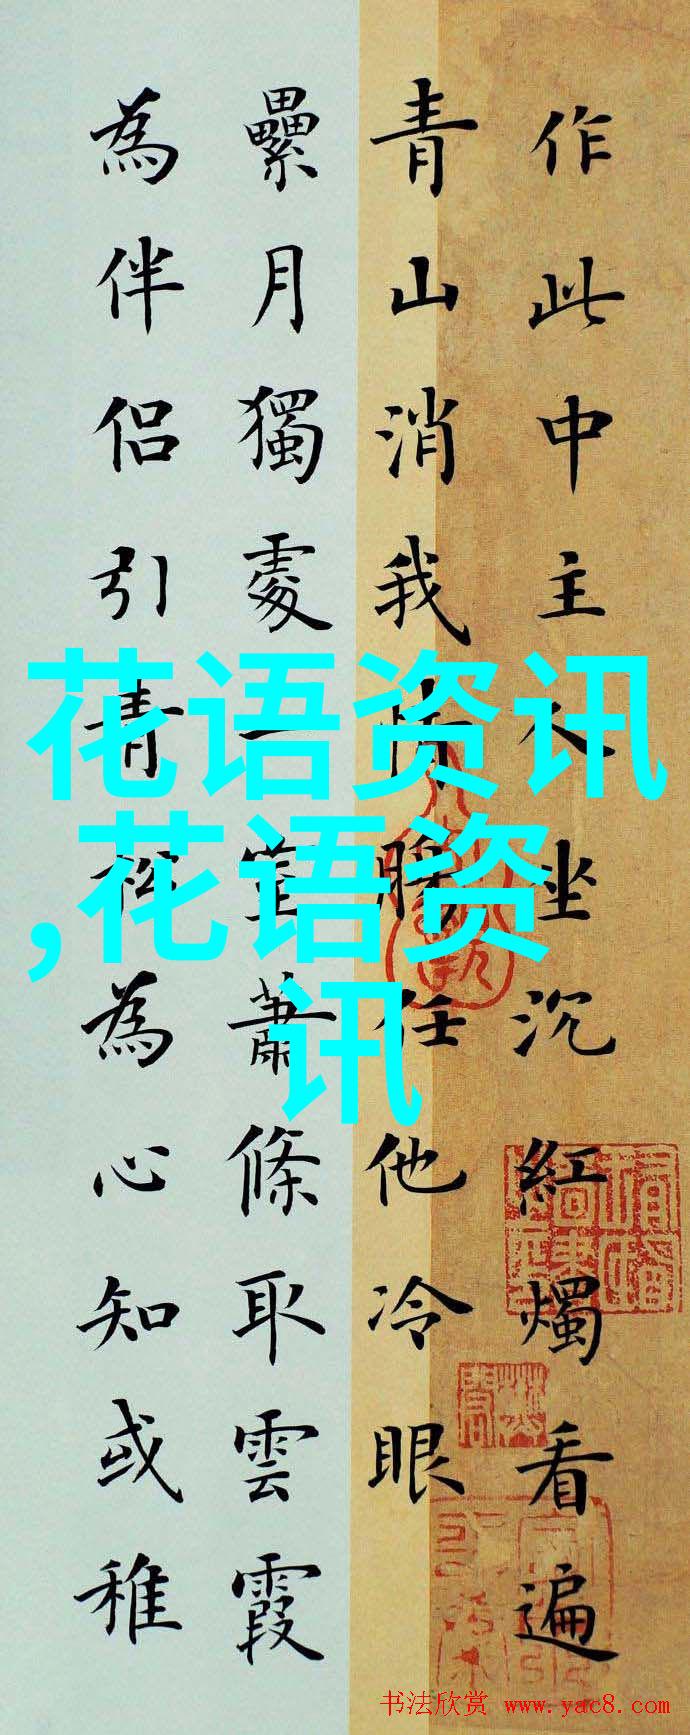 作此中主人坐沉紅燭看遍
青山消我情腸任他冷眼
纍月獨處一室蕭條取雲霞
為伴侶引青松為心知或稚
花语资讯
,花语资
讯
书法欣赏 www.yac8.com